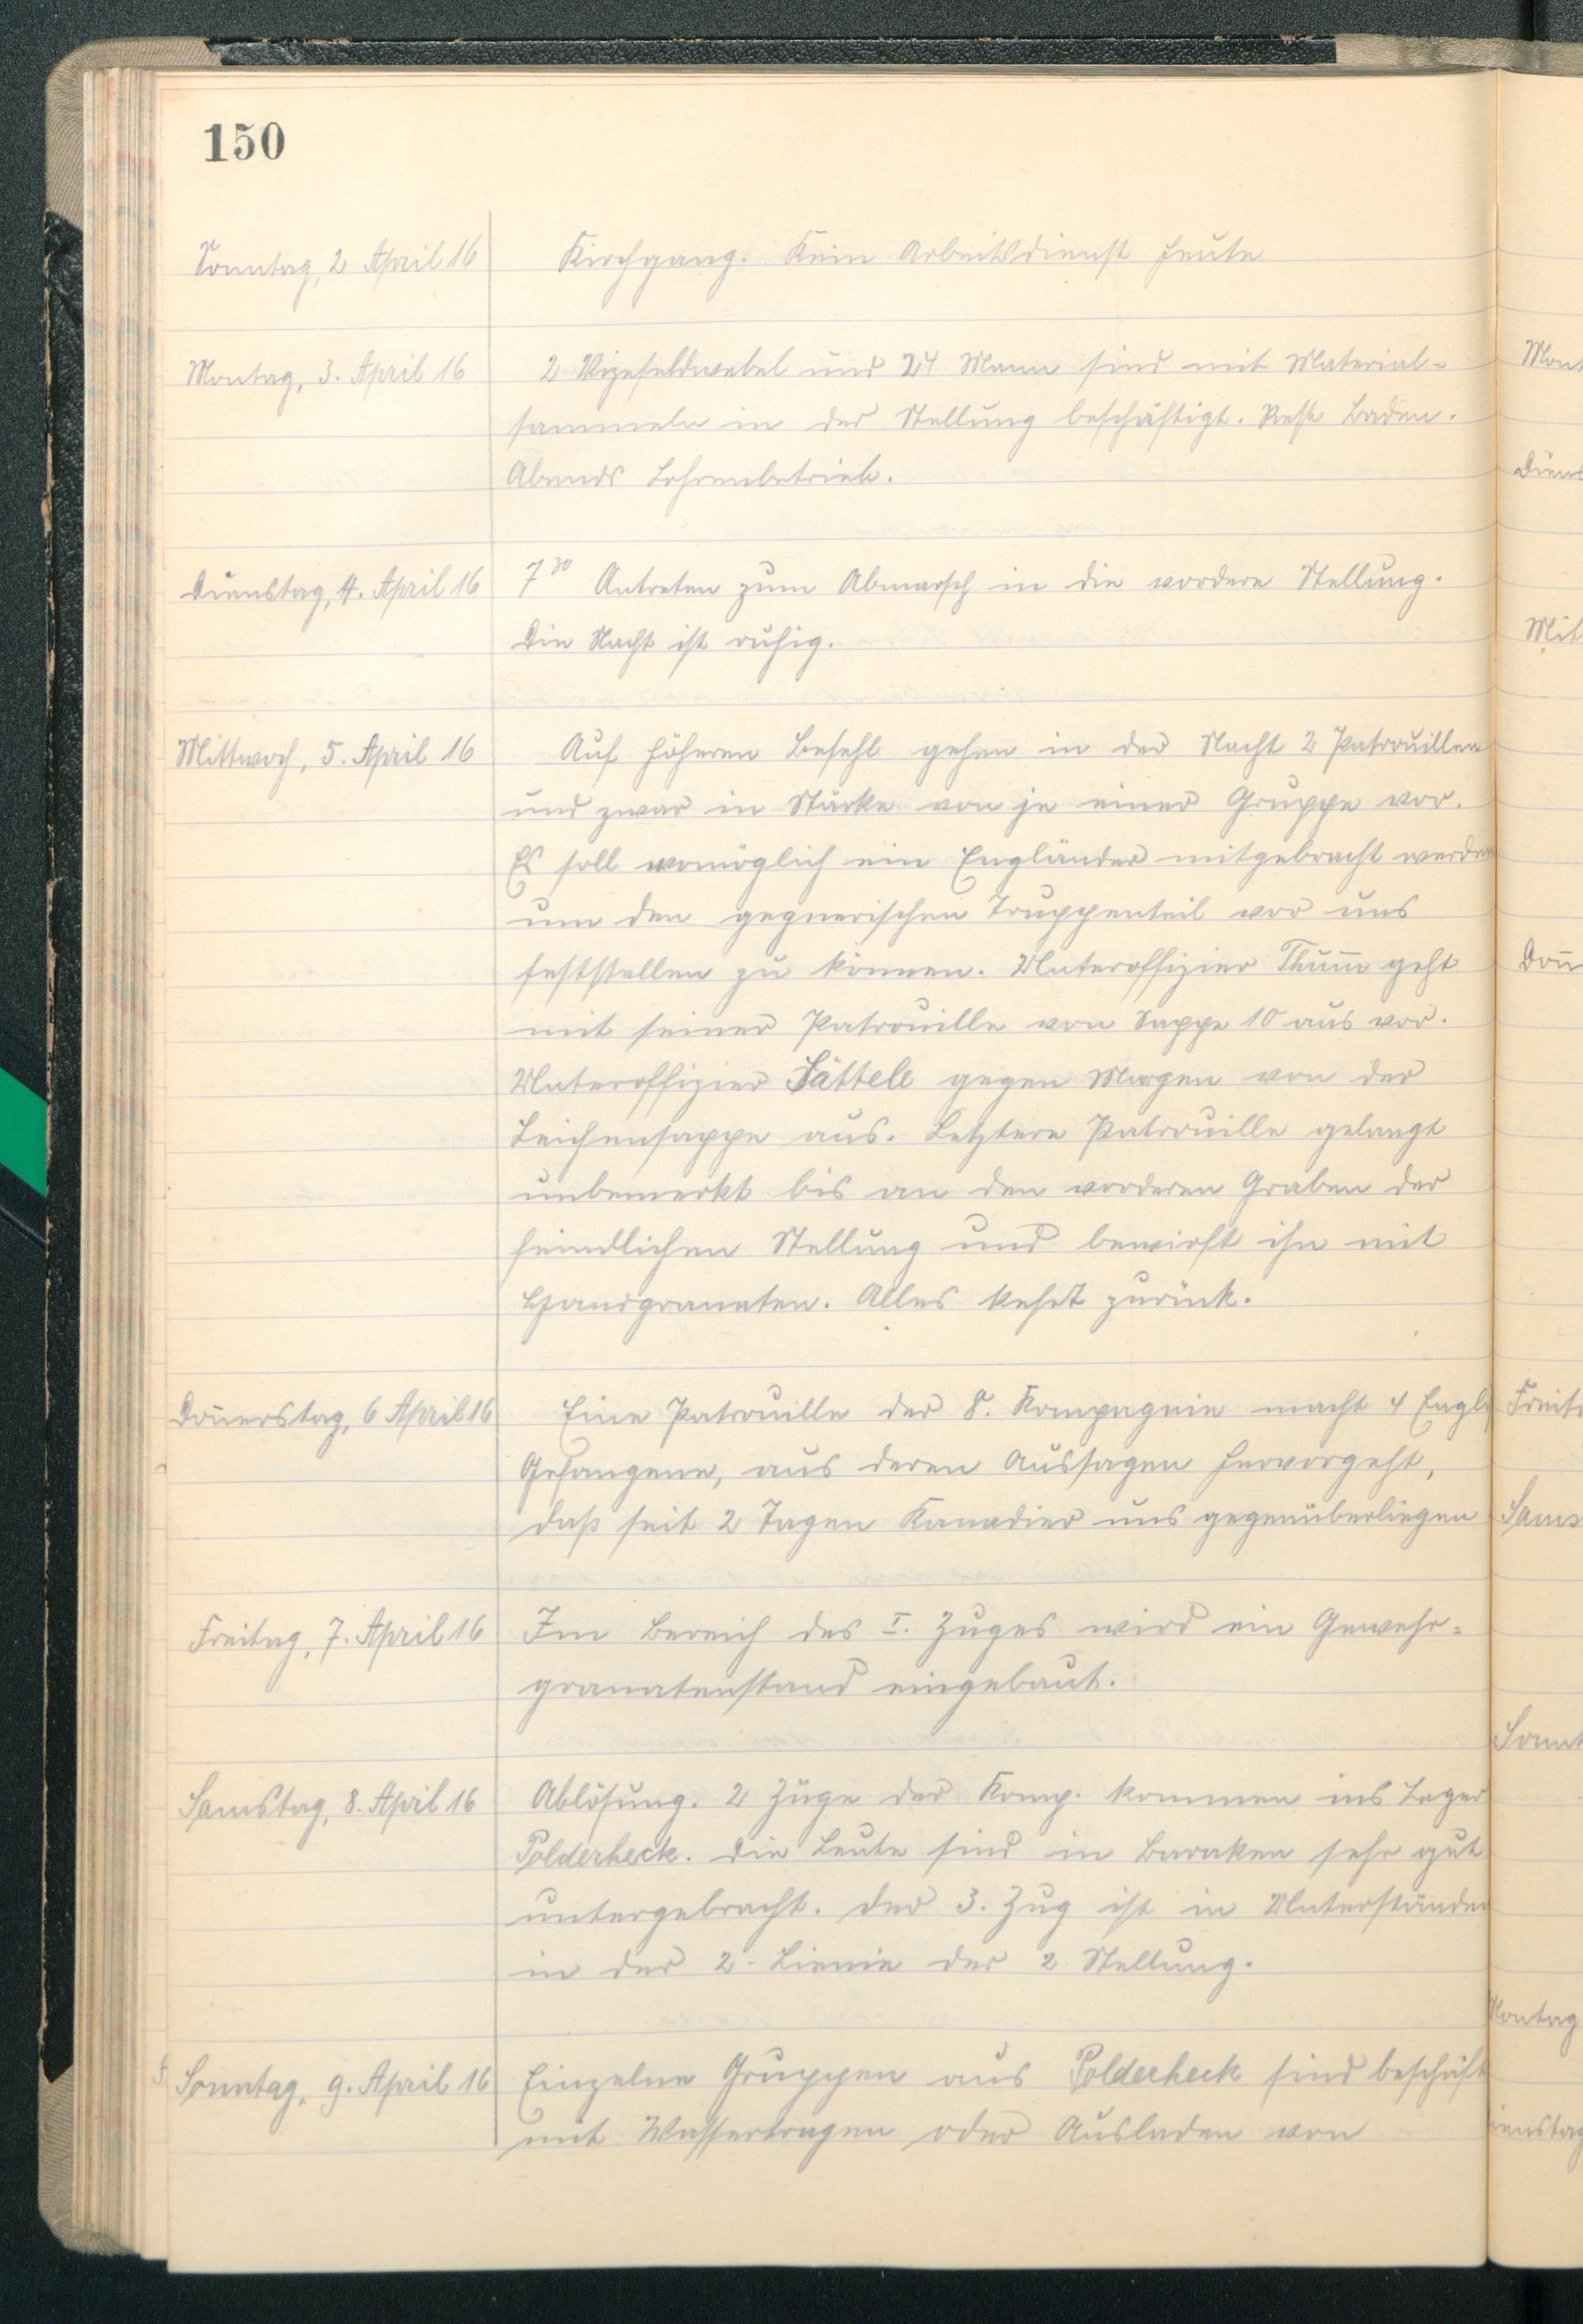 150
Sonntag, 2 April 16 Kirchgang. Kein Arbeitsdienst heute
Montag, 3. April 16 2 Vizefeldwebel und 24 Mann sind mit Material-
sammeln in der Stellung beschäftigt. Rest Baden.
Abends Lohrenbetrieb.
Dienstag, 4. April 16 7³⁰ Antreten zum Abmarsch in die vordere Stellung.
Die Nacht ist ruhig.
Mittwoch, 5. April 16 Auf höheren Befehl gehen in der Nacht 2 Patrouillen
und zwar in Stärke von je einer Gruppe vor.
Es soll womöglich ein Engländer mitgebracht werden
um den gegnerischen Truppenteil vor uns
feststellen zu können. Unteroffizier Thum̄ geht
mit seiner Patrouille von Sappe 10 aus vor.
Unteroffizier Sättele gegen Morgen von der
Leichensappe aus. Letztere Patrouille gelangt
unbemerkt bis an den vorderen Graben der
feindlichen Stellung und bewirft ihn mit
Handgranaten. Alles kehrt zurück.
Don̄erstag, 6 April 16 Eine Patrouille der 8. Kompagnie macht 4 Engl.
Gefangene, aus deren Aussagen hervorgeht,
daß seit 2 Tagen Kanadier uns gegenüberliegen
Freitag, 7. April 16 Im Bereich des I. Zuges wird ein Gewehr-
granatenstand eingebaut.
Samstag, 8. April 16 Ablösung. 2 Züge der Komp. kommen ins Lager
Polderheck. Die Leute sind in Baraken sehr gut
untergebracht. Der 3. Zug ist in Unterständen
in der 2. Linie der 2 Stellung.
Sonntag, 9. April 16 Einzelne Gruppen aus Polderheck sind beschäft
mit Wassertragen oder Ausladen von
Mont
Diens
Mit
Don̄
Freit
Sams
Sonnt
Montag
ienstag